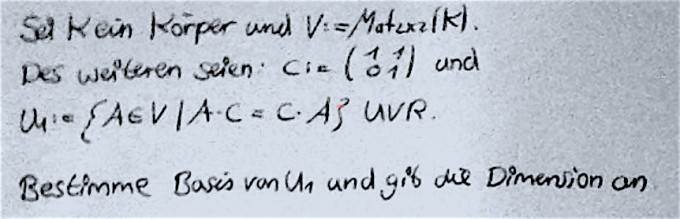 Sei K ein Körper und V:=Mat2x2(K).
Des weiteren seien: C:= (1 1 0 1) und
U1:= {A∈V | A·C = C·A} UVR.
Bestimme Basis von U1 und gib die Dimension an